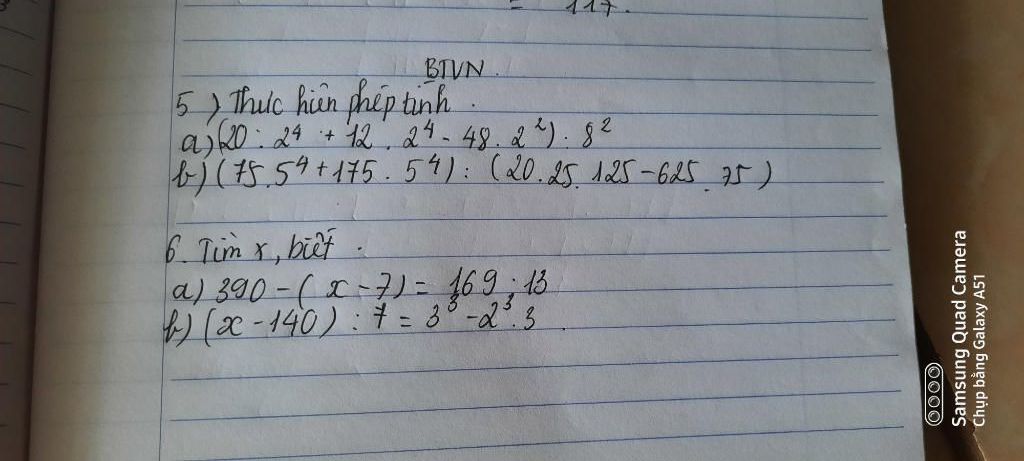 = 117.
BTVN.
5) Thực hiện phép tính.
a) (20 : 2⁴ + 12 . 2⁴ - 48 . 2²) : 8²
b) (75 . 5⁴ + 175 . 5⁴) : (20 . 25 . 125 - 625 . 75)
6. Tìm x, biết.
a) 390 - (x - 7) = 169 : 13
b) (x - 140) : 7 = 3³ - 2³ . 3
Samsung Quad Camera
Chụp bằng Galaxy A51